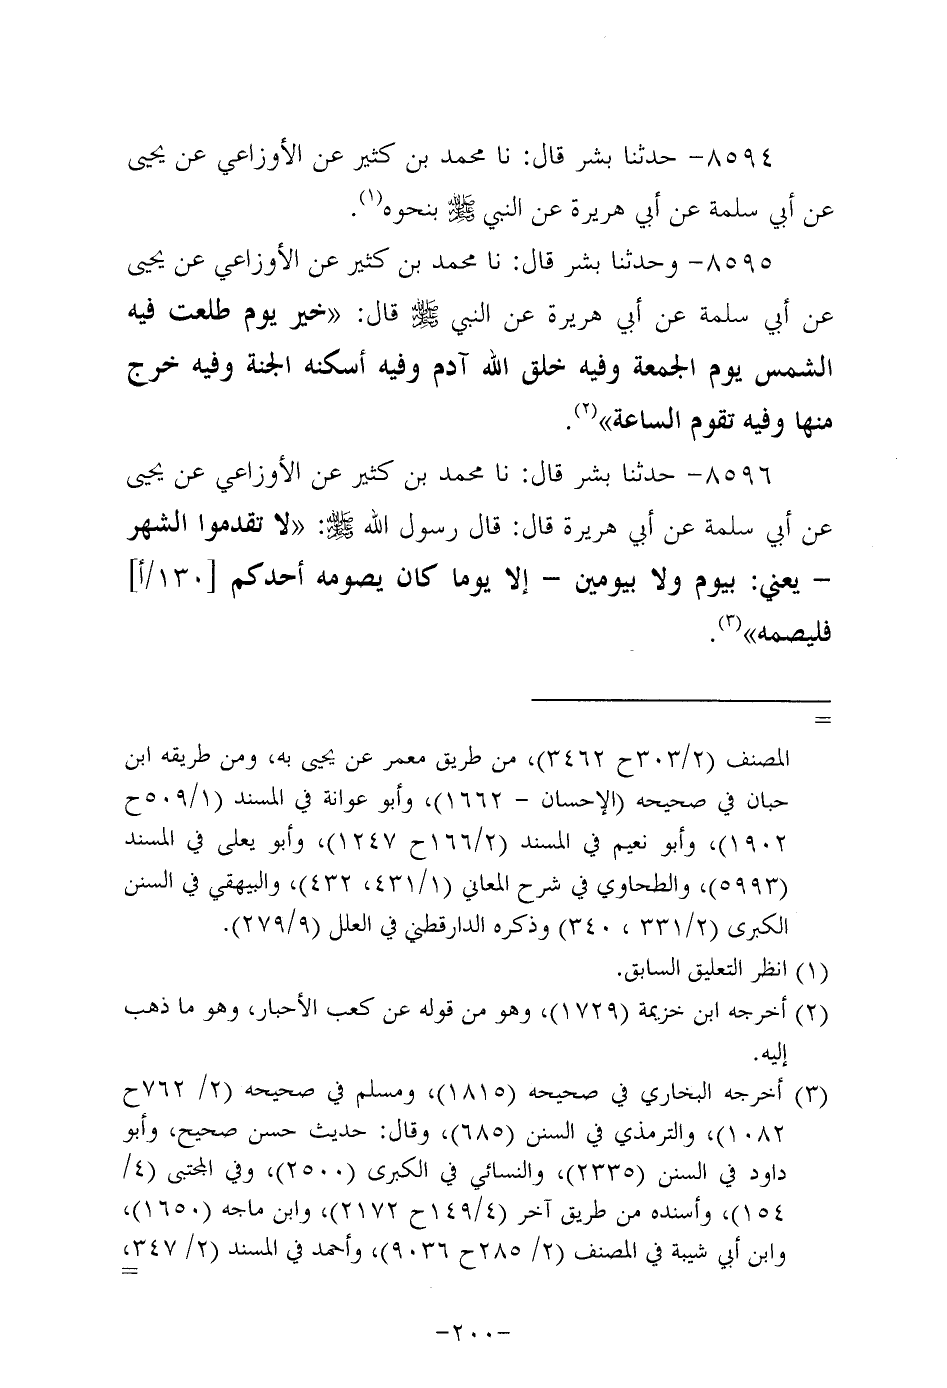 ٨٥٩٤- حدثنا بشر قال: نا محمد بن كثير عن الأوزاعي عن يحيى
عن أبي سلمة عن أبي هريرة عن النبي ﷺ بنحوه(١).
٨٥٩٥- وحدثنا بشر قال: نا محمد بن كثير عن الأوزاعي عن يحيى
عن أبي سلمة عن أبي هريرة عن النبي ﷺ قال: «خير يوم طلعت فيه
الشمس يوم الجمعة وفيه خلق الله آدم وفيه أسكنه الجنة وفيه خرج
منها وفيه تقوم الساعة»(٢).
٨٥٩٦- حدثنا بشر قال: نا محمد بن كثير عن الأوزاعي عن يحيى
عن أبي سلمة عن أبي هريرة قال: قال رسول الله ﷺ: «لا تقدموا الشهر
– يعني: بيوم ولا بيومين – إلا يوما كان يصومه أحدكم [١٣٠/أ]
فليصمه»(٣).
=
المصنف (٣٠٣/٢ح ٣٤٦٢)، من طريق معمر عن يحيى به، ومن طريقه ابن
حبان في صحيحه (الإحسان – ١٦٦٢)، وأبو عوانة في المسند (٥٠٩/١ح
١٩٠٢)، وأبو نعيم في المسند (١٦٦/٢ح ١٢٤٧)، وأبو يعلى في المسند
(٥٩٩٣)، والطحاوي في شرح المعاني (٤٣١/١، ٤٣٢)، والبيهقي في السنن
الكبرى (٣٣١/٢ ، ٣٤٠) وذكره الدارقطني في العلل (٢٧٩/٩).
(١) انظر التعليق السابق.
(٢) أخرجه ابن خزيمة (١٧٢٩)، وهو من قوله عن كعب الأحبار، وهو ما ذهب
إليه.
(٣) أخرجه البخاري في صحيحه (١٨١٥)، ومسلم في صحيحه (٢/ ٧٦٢ح
١٠٨٢)، والترمذي في السنن (٦٨٥)، وقال: حديث حسن صحيح، وأبو
داود في السنن (٢٣٣٥)، والنسائي في الكبرى (٢٥٠٠)، وفي المجتبى (٤/
١٥٤)، وأسنده من طريق آخر (١٤٩/٤ح ٢١٧٢)، وابن ماجه (١٦٥٠)،
وابن أبي شيبة في المصنف (٢/ ٢٨٥ح ٩٠٣٦)، وأحمد في المسند (٢/ ٣٤٧،
=
-٢٠٠-